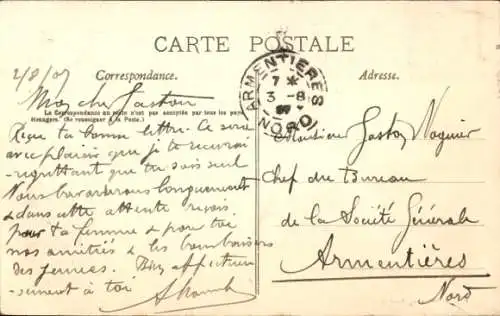 CARTE POSTALE
2/8/07
Correspondance.
Adresse.
Mon cher Gaston
La Correspondance au recto n'est pas acceptée par tous les pays
étrangers. (Se renseigner à la Poste.)
Reçu ta bonne lettre. Ce sera
avec plaisir que je te recevrai
regrettant que tu sois seul
Nous bavarderons longuement
& dans cette attente reçois
pour ta femme & pour toi
nos amitiés & les
des jeunes. Bien affectueu-
sement à toi
ARMENTIERES
7
3 -8
07
NORD
Monsieur Gaston
Chef de Bureau
de la Société Générale
Armentières
Nord